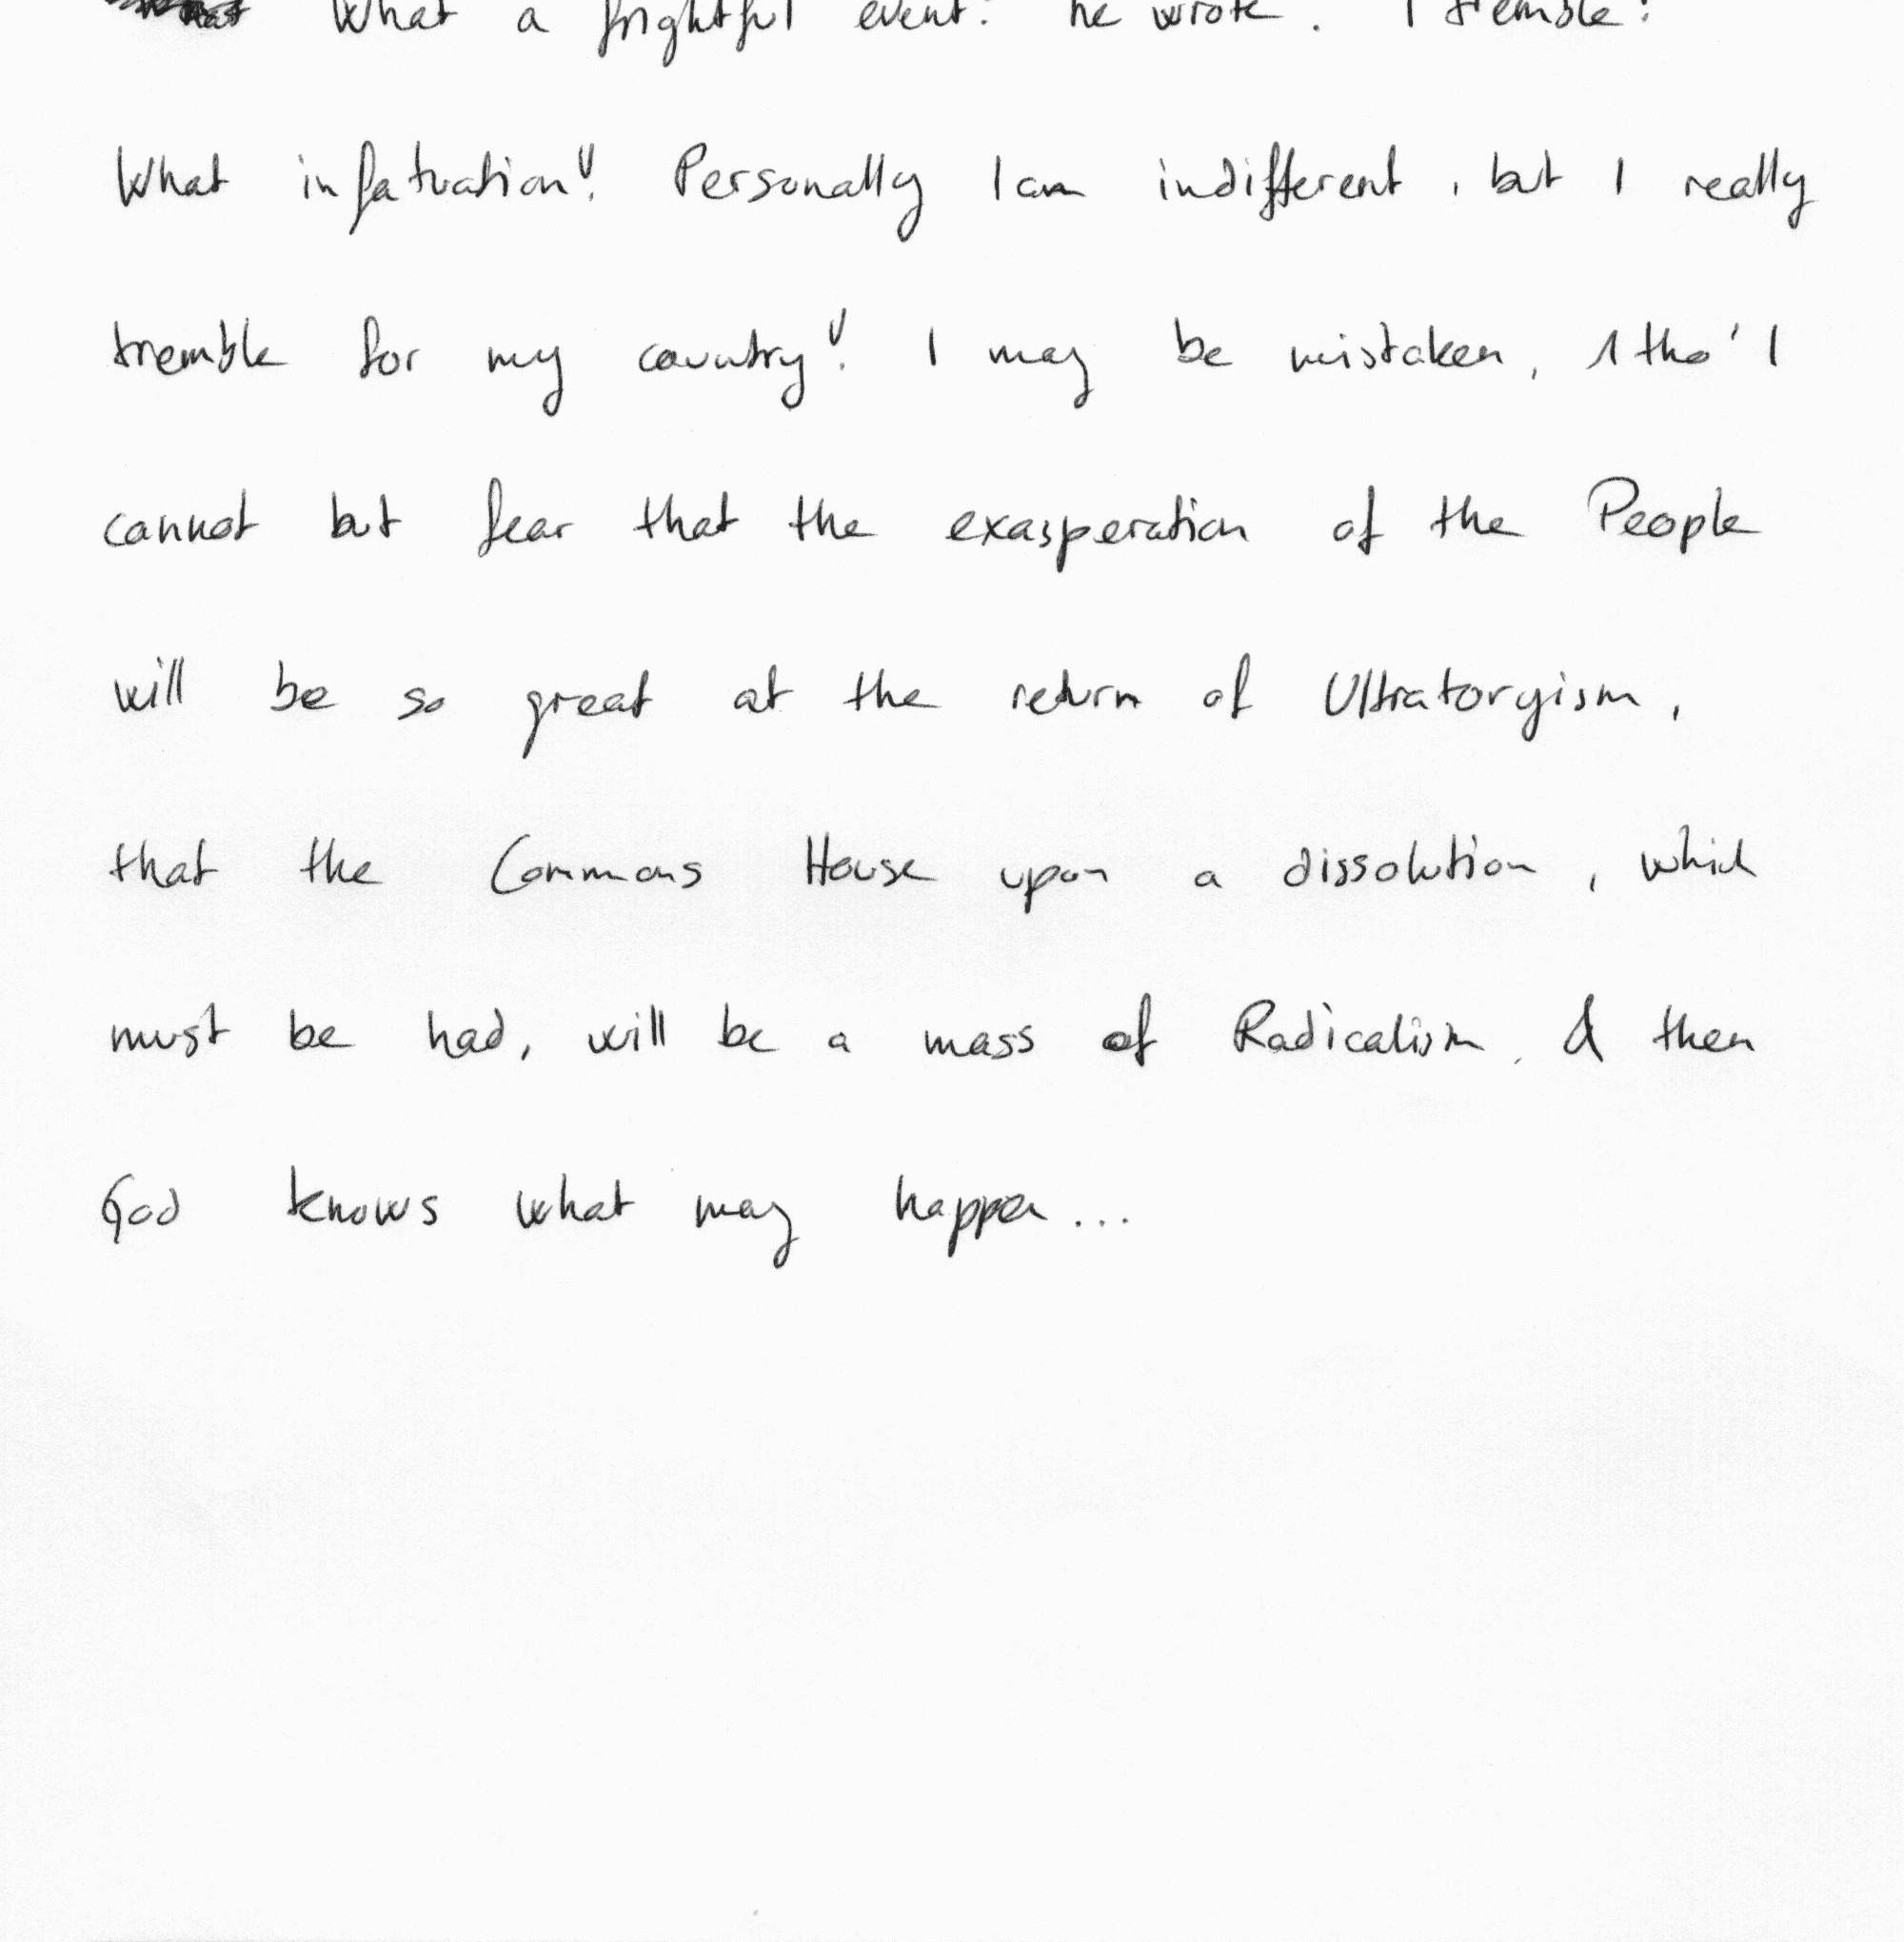 What a frightful event! he wrote. I tremble!
What infatuation! Personally I am indifferent, but I really
tremble for my country! I may be mistaken, tho' I
cannot but fear that the exasperation of the People
will be so great at the return of Ultratoryism,
that the Commons House upon a dissolution, which
must be had, will be a mass of Radicalism, & then
God knows what may happen...